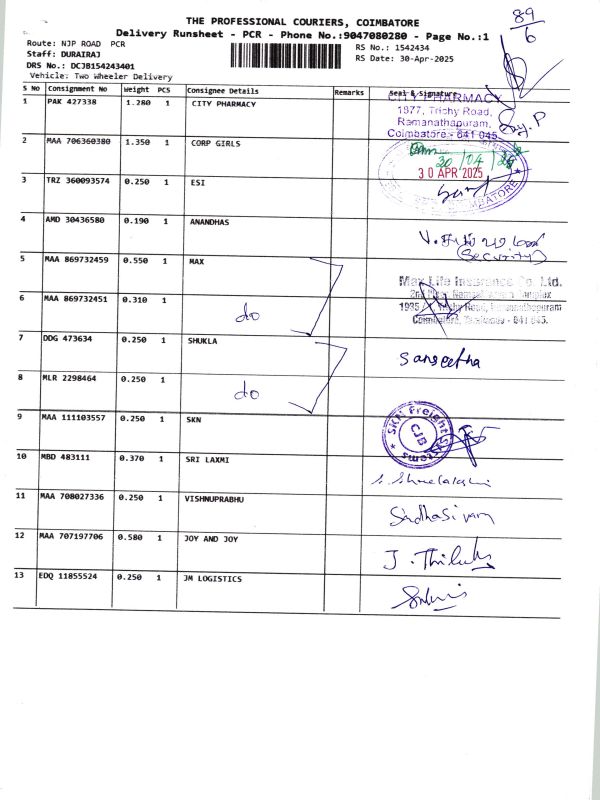 89
6
THE PROFESSIONAL COURIERS, COIMBATORE
Delivery Runsheet - PCR - Phone No.:9047080280 - Page No.:1
Route: NJP ROAD PCR
Staff: DURAIRAJ
DRS No.: DCJB154243401
Vehicle: Two Wheeler Delivery
RS No.: 1542434
RS Date: 30-Apr-2025
S No Consignment No Weight PCS Consignee Details Remarks Seal & Signature
1 PAK 427338 1.280 1 CITY PHARMACY
CITY PHARMACY
1977, Trichy Road,
Ramanathapuram,
Coimbatore - 641 045
2 MAA 706360380 1.350 1 CORP GIRLS
30/04/25
30 APR 2025
COIMBATORE
3 TRZ 360093574 0.250 1 ESI
4 AMD 30436580 0.190 1 ANANDHAS
(Security)
5 MAA 869732459 0.550 1 MAX
Max Life Insurance Co. Ltd.
6 MAA 869732451 0.310 1 do
Coimbatore, Tamilnadu - 641 045.
7 DDG 473634 0.250 1 SHUKLA
Sangeetha
8 MLR 2298464 0.250 1 do
9 MAA 111103557 0.250 1 SKN
SKN Freight Systems
CJB
10 MBD 483111 0.370 1 SRI LAXMI
11 MAA 708027336 0.250 1 VISHNUPRABHU
Sadhasivam
12 MAA 707197706 0.580 1 JOY AND JOY
13 EDQ 11855524 0.250 1 JM LOGISTICS